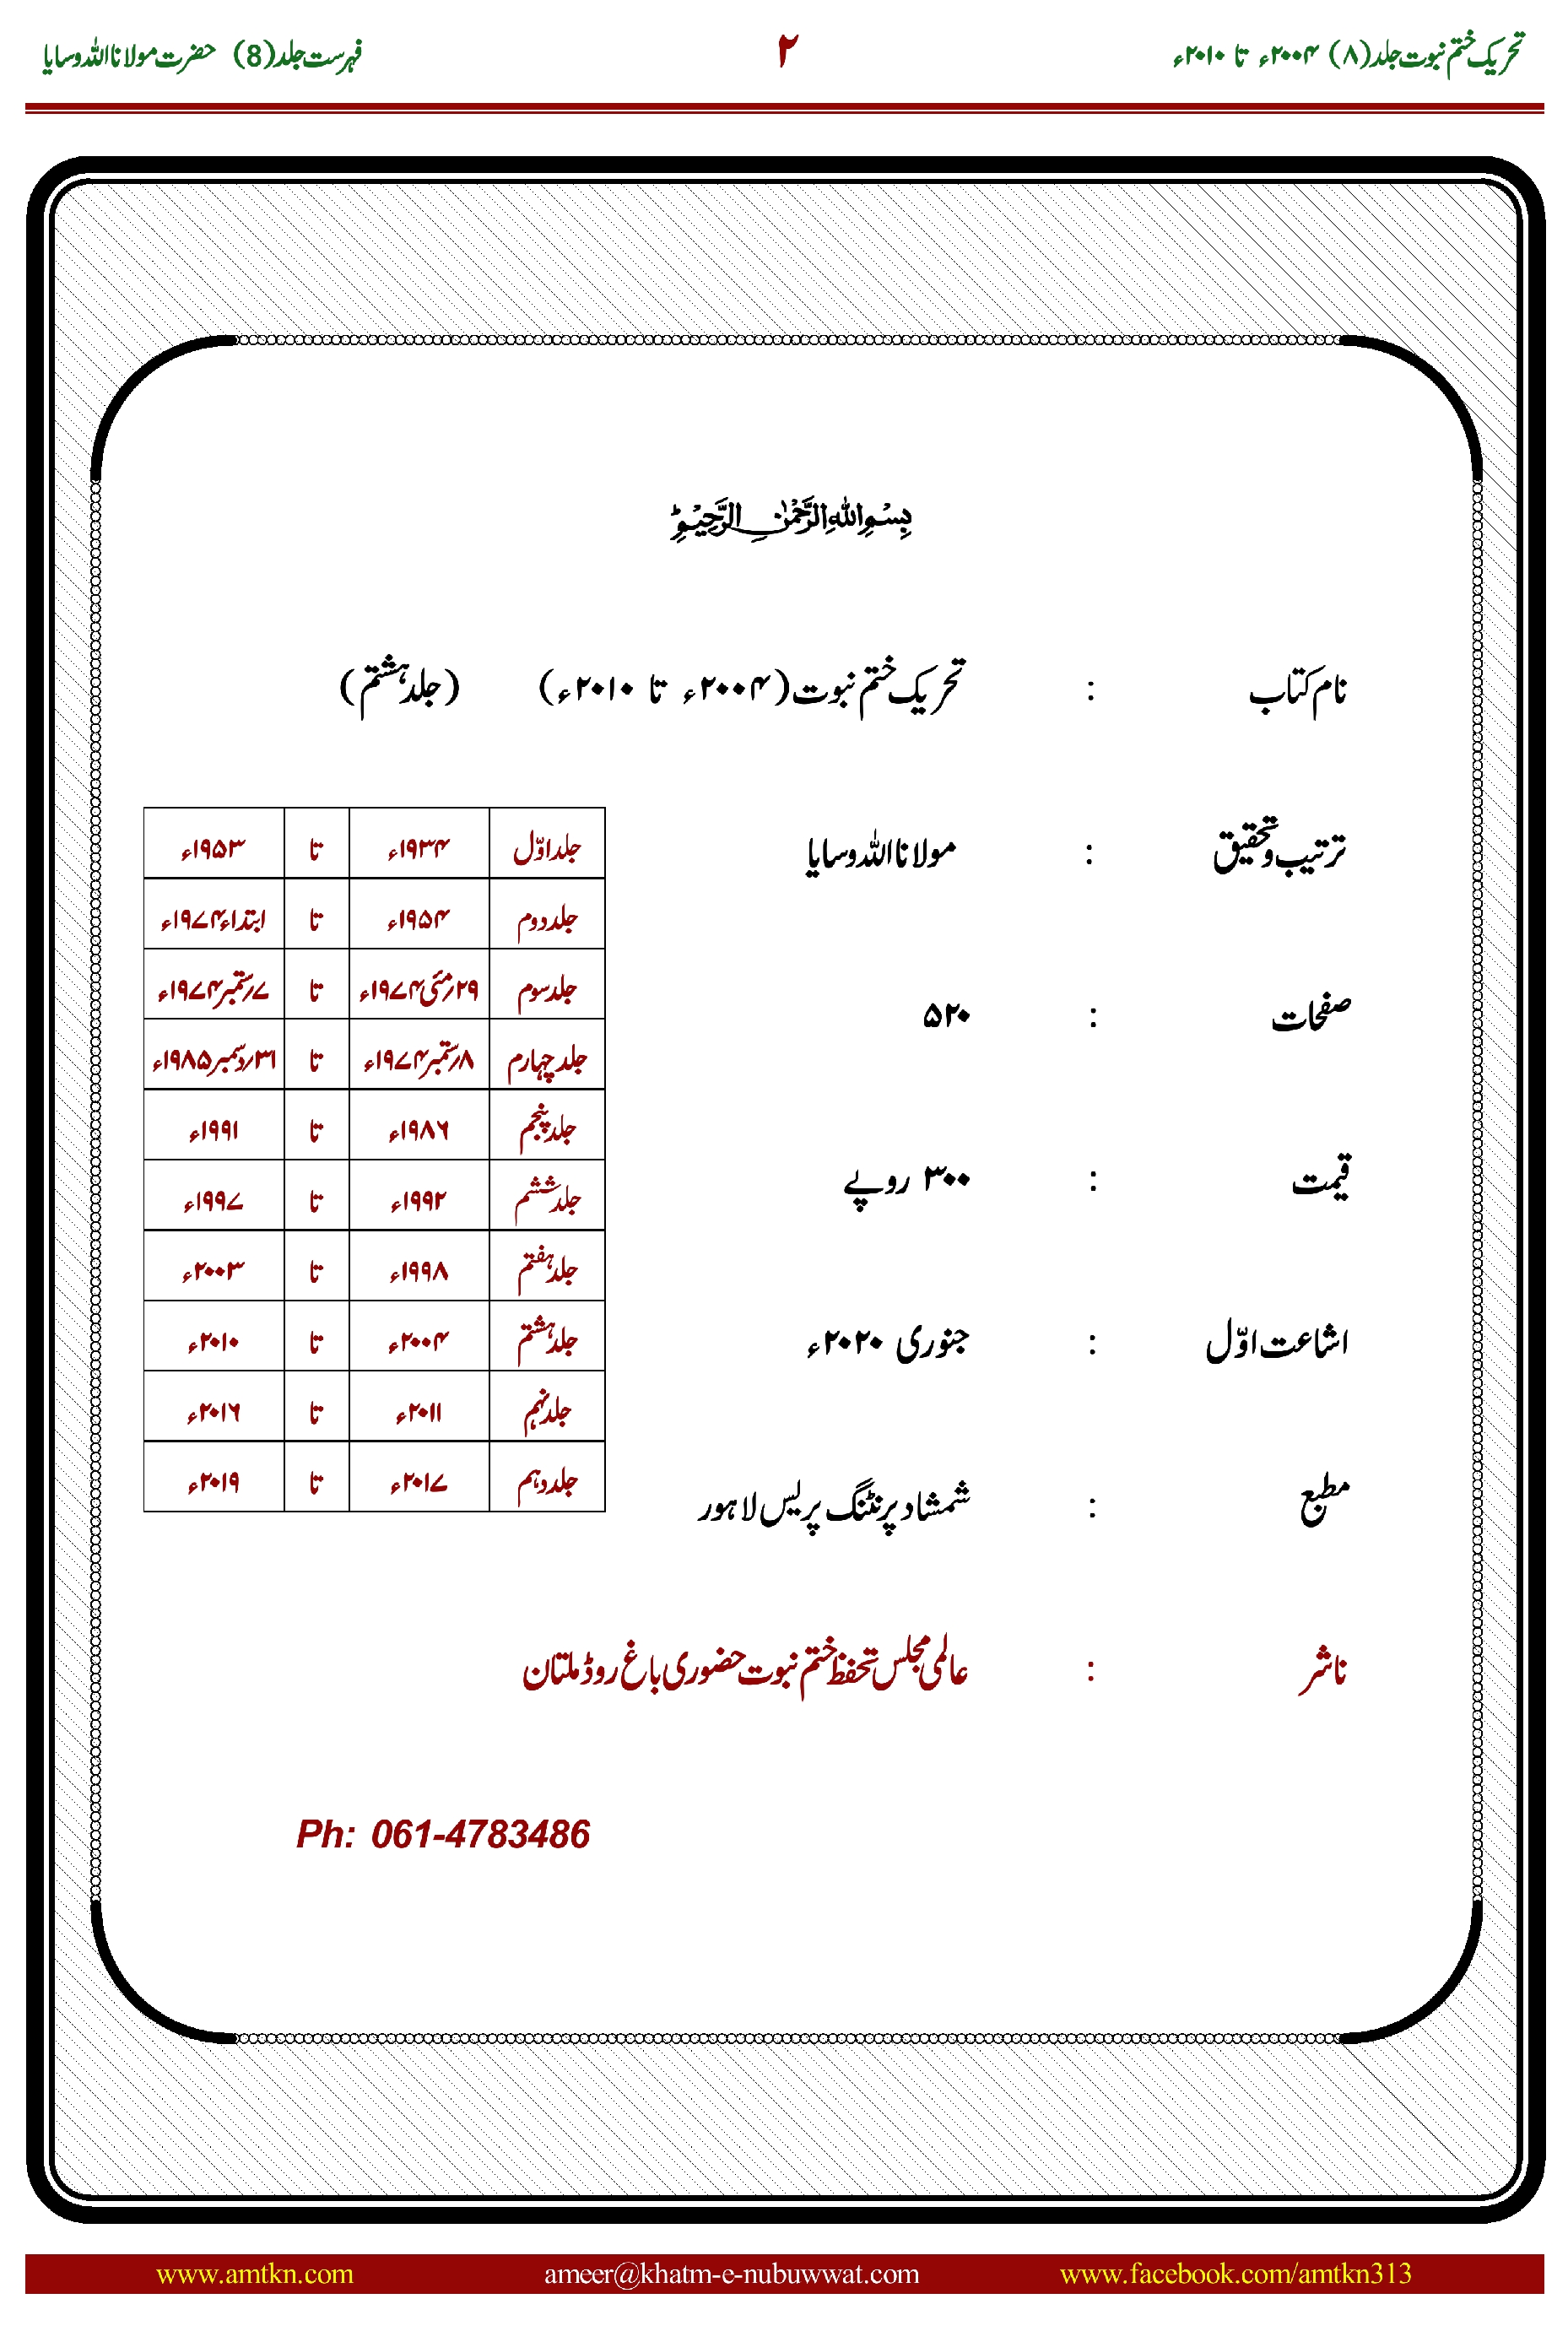 تحریک ختم نبوت جلد (۸) ۲۰۰۴ء تا ۲۰۱۰ء ۲ فہرست جلد (8) حضرت مولانا اللہ وسایا
بِسْمِ اللهِ الرَّحْمٰنِ الرَّحِيْمِ
نام کتاب : تحریک ختم نبوت (۲۰۰۴ء تا ۲۰۱۰ء) (جلد ہشتم)
ترتیب و تحقیق : مولانا اللہ وسایا
صفحات : ۵۲۰
قیمت : ۳۰۰ روپے
اشاعت اوّل : جنوری ۲۰۲۰ء
مطبع : شمشاد پرنٹنگ پریس لاہور
جلد اوّل ۱۹۳۴ء تا ۱۹۵۳ء
جلد دوم ۱۹۵۴ء تا ابتداء ۱۹۷۴ء
جلد سوم ۲۹؍مئی ۱۹۷۴ء تا ۷؍ستمبر ۱۹۷۴ء
جلد چہارم ۸؍ستمبر ۱۹۷۴ء تا ۳۱؍دسمبر ۱۹۸۵ء
جلد پنجم ۱۹۸۶ء تا ۱۹۹۱ء
جلد ششم ۱۹۹۲ء تا ۱۹۹۷ء
جلد ہفتم ۱۹۹۸ء تا ۲۰۰۳ء
جلد ہشتم ۲۰۰۴ء تا ۲۰۱۰ء
جلد نہم ۲۰۱۱ء تا ۲۰۱۶ء
جلد دہم ۲۰۱۷ء تا ۲۰۱۹ء
ناشر : عالمی مجلس تحفظ ختم نبوت حضوری باغ روڈ ملتان
Ph: 061-4783486
www.amtkn.com ameer@khatm-e-nubuwwat.com www.facebook.com/amtkn313